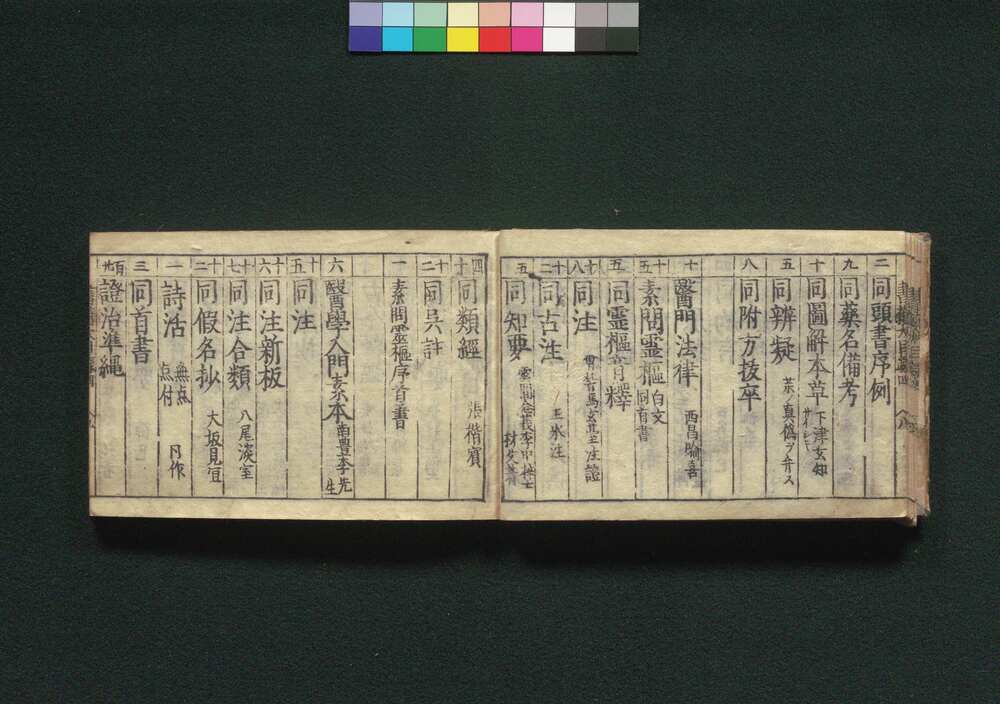 二 同頭書序例
九 同藥名備考
十 同圖解本草 下津玄知
五 同辨疑 茶ノ真偽ヲ弁ス
八 同附方抜卒
十 醫門法律 西昌喩喜
十五 素問霊樞 白文 同首書
五 同霊樞音釋
十八 同注 馬玄臺 注證
十二 同古注 王氷注
五 同知要 雲間念莪李中梓士材
四十 同類經 張
十二 同呉註
一 素問霊樞序首書
六 醫學入門 玄素本 南豊李先生
十五 同注
十六 同注新板
十七 同注合類 八尾淡室
十二 同假名抄 大坂見宜
一 詩活 無点 点付
三 同首書
百廿 證治準縄